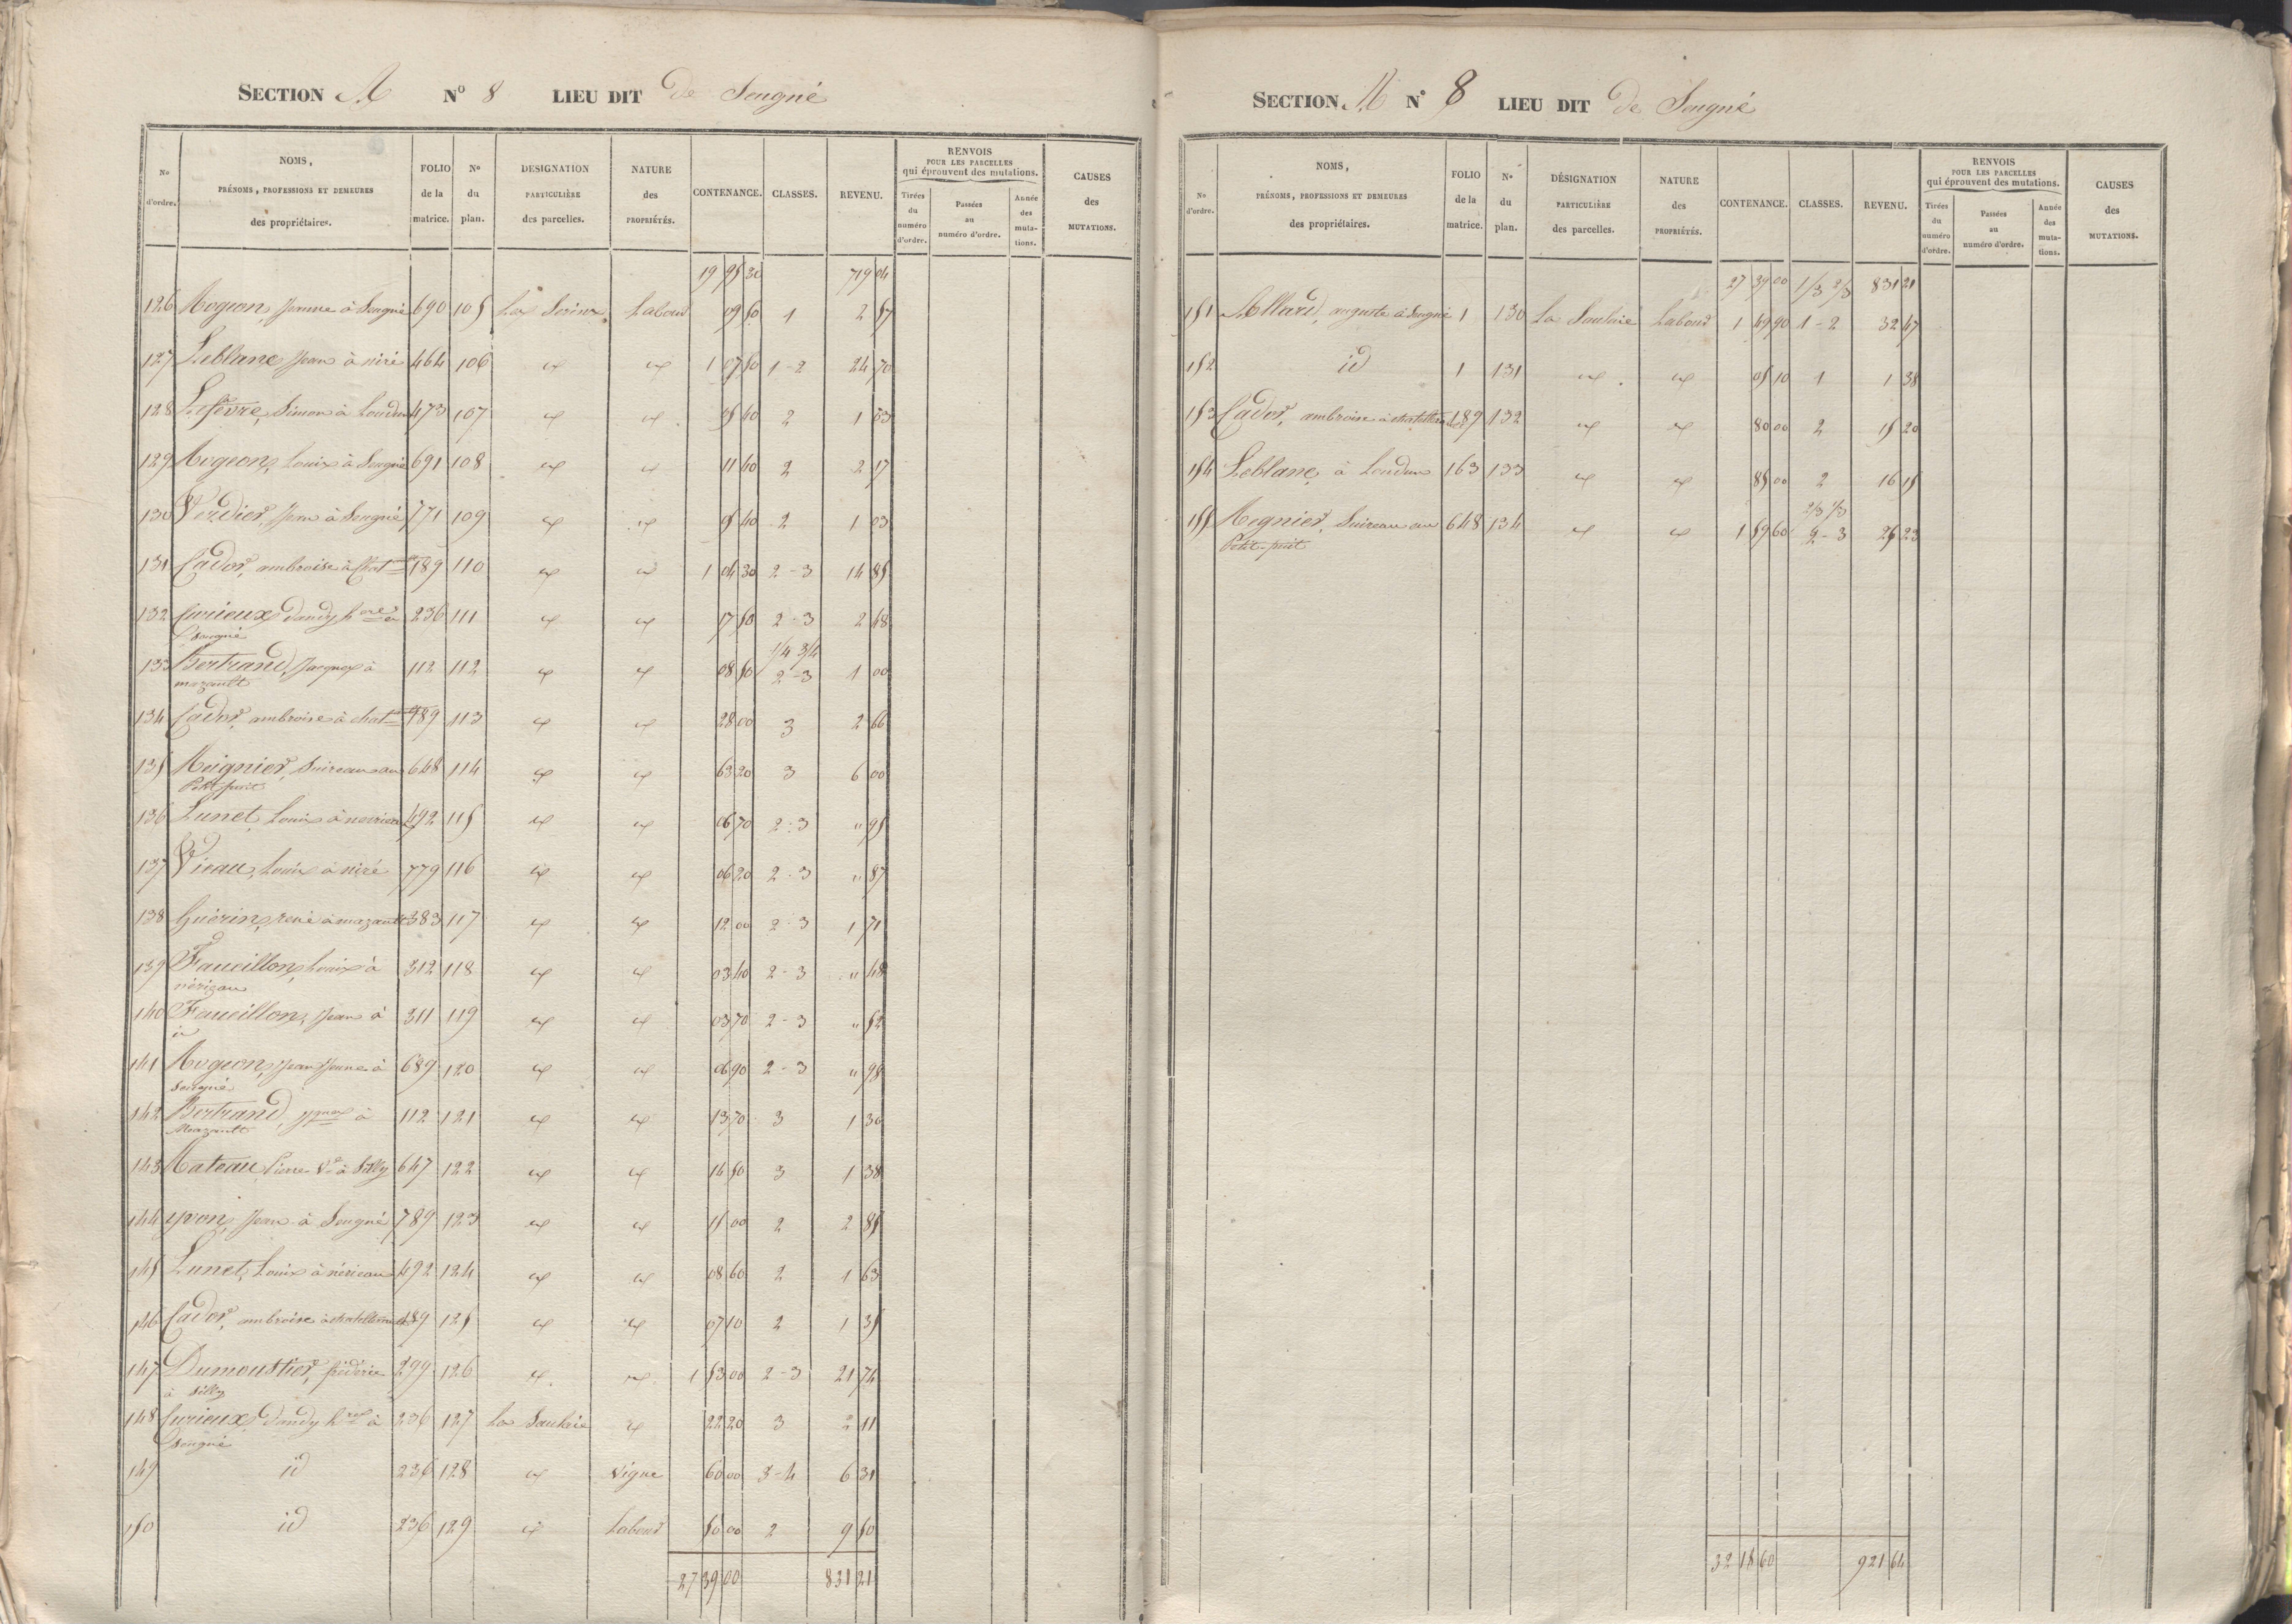 SECTION M N° 8 LIEU DIT de Sengné
N° d'ordre. NOMS, PRÉNOMS, PROFESSIONS ET DEMEURES des propriétaires. FOLIO de la matrice. N° du plan. DESIGNATION PARTICULIÈRE des parcelles. NATURE des PROPRIÉTÉS. CONTENANCE. CLASSES. REVENU. RENVOIS POUR LES PARCELLES qui éprouvent des mutations. Tirées du numéro d'ordre. Passées au numéro d'ordre. Année des mutations. CAUSES des MUTATIONS.
19 95 30 719 04
126 Mogeon, Jeanne à Sengné 690 105 La Labour 09 50 1 2 57
127 Leblanc Jean à niré 464 106 id id 1 07 50 1-2 24 70
128 Lefèvre, Simon à Loudun 473 107 id id 05 40 2 1 03
129 Mogeon, Louis à Sengné 691 108 id id 11 40 2 2 17
130 Verdier, Jean à Sengné 771 109 id id 05 40 2 1 03
131 Cador, ambroise à Chat 189 110 id id 1 04 30 2-3 14 85
132 Curieux Dandy h à 236 111 id id 17 50 2-3 2 48
Sengné
1/4 3/4
133 Bertrand, Jacques à 112 112 id id 08 50 2-3 1 00
mazault
134 Cador, ambroise à chat 189 113 id id 28 00 3 2 66
135 Meignier, Suireau au 648 114 id id 63 20 3 6 00
Petit puit
136 Lunet, Louis à 492 115 id id 06 70 2-3 " 95
137 Vieau, Louis à niré 779 116 id id 06 20 2-3 " 87
138 Guérin, rené à mazault 383 117 id id 12 00 2-3 1 71
139 Faucillon, Louis à 312 118 id id 03 40 2-3 " 48
nérizeau
140 Faucillon, Jean à 311 119 id id 03 70 2-3 " 52
id
141 Mogeon, Jean Jeune à 689 120 id id 06 90 2-3 " 98
Sengné
142 Bertrand, Jques à 112 121 id id 13 70 3 1 30
Mazault
143 Mateau Pierre Ve à Silly 647 122 id id 14 50 3 1 38
144 yvon, Jean à Sengné 789 123 id id 15 00 2 2 85
145 Lunet, Louis à nérieau 492 124 id id 08 60 2 1 63
146 Cador, ambroise à chatellerault 189 125 id id 07 10 2 1 35
147 Dumoustier, frédéric 299 126 id id 1 53 00 2-3 21 74
à Silly
148 Curieux, Dandy h à 236 127 La Saulaie id 22 20 3 2 11
Sengné
149 id 236 128 id Vigne 60 00 3-4 6 31
150 id 236 129 id Labour 50 00 2 9 50
27 39 00 831 21
SECTION M N° 8 LIEU DIT de Sengné
N° d'ordre. NOMS, PRÉNOMS, PROFESSIONS ET DEMEURES des propriétaires. FOLIO de la matrice. N° du plan. DÉSIGNATION PARTICULIÈRE des parcelles. NATURE des PROPRIÉTÉS. CONTENANCE. CLASSES. REVENU. RENVOIS POUR LES PARCELLES qui éprouvent des mutations. Tirées du numéro d'ordre. Passées au numéro d'ordre. Année des mutations. CAUSES des MUTATIONS.
27 39 00 1/3 2/3 831 21
151 Allard, auguste à Sengné 1 130 La Saulaie Labour 1 49 90 1-2 32 47
152 id 1 131 id id 05 10 1 1 38
153 Cador, ambroise à chatellerault 189 132 id id 80 00 2 15 20
154 Leblanc, à Loudun 163 133 id id 85 00 2 16 15
2/3 1/3
155 Megnier, Suireau au 648 134 id id 1 59 60 2-3 25 23
Petit-puit
32 18 60 921 64